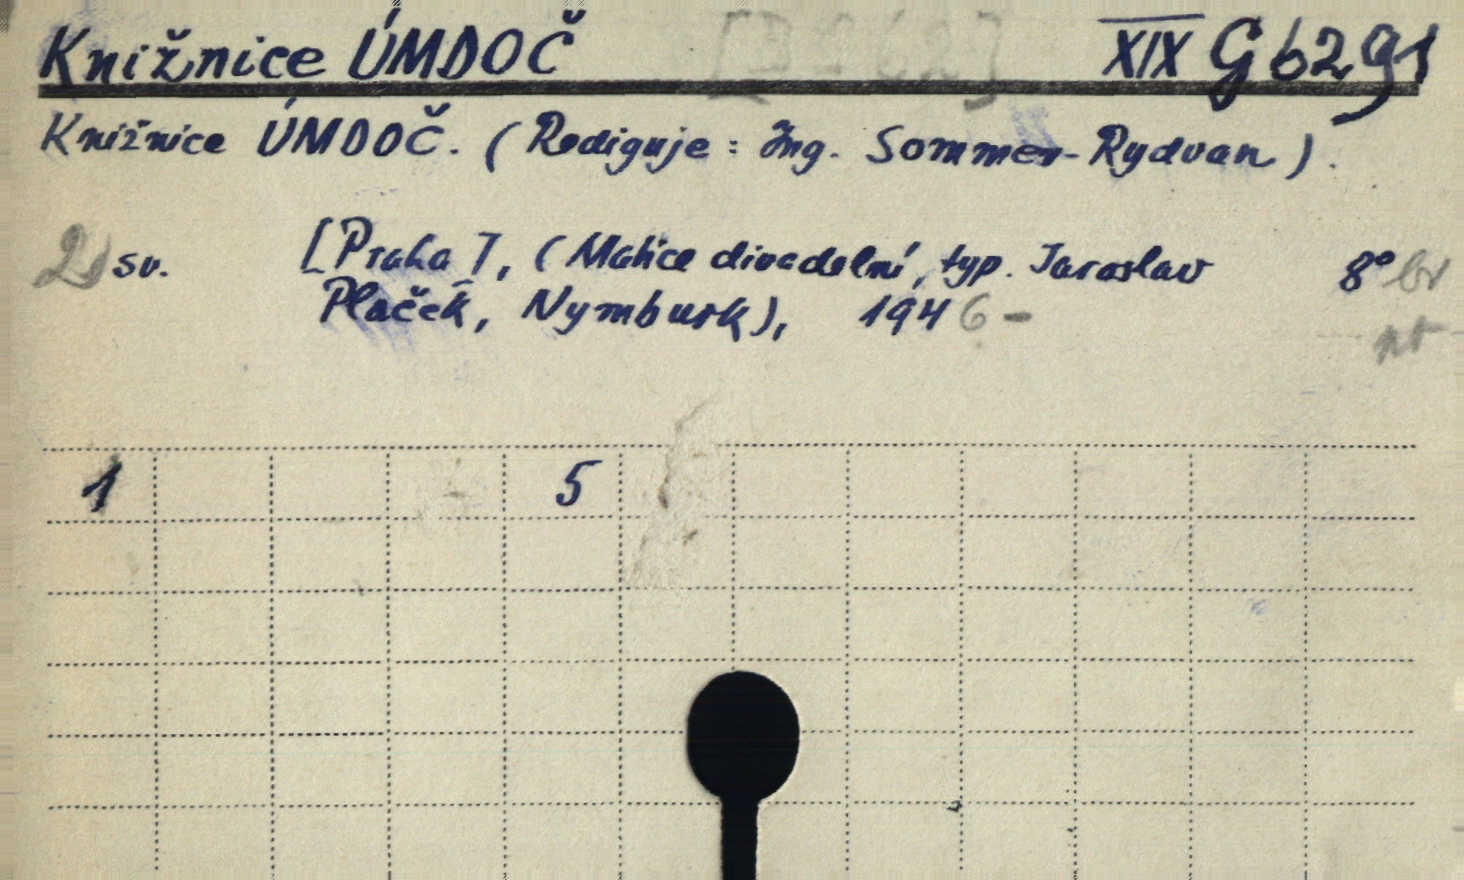 Knižnice ÚMDOČ XIX G 6291
Knižnice ÚMDOČ. (Rediguje: Ing. Sommer-Rydvan).
2) sv. [Praha], (Matice divadelní, typ. Jaroslav 8° br
Plaček, Nymburk), 1946-
1 5